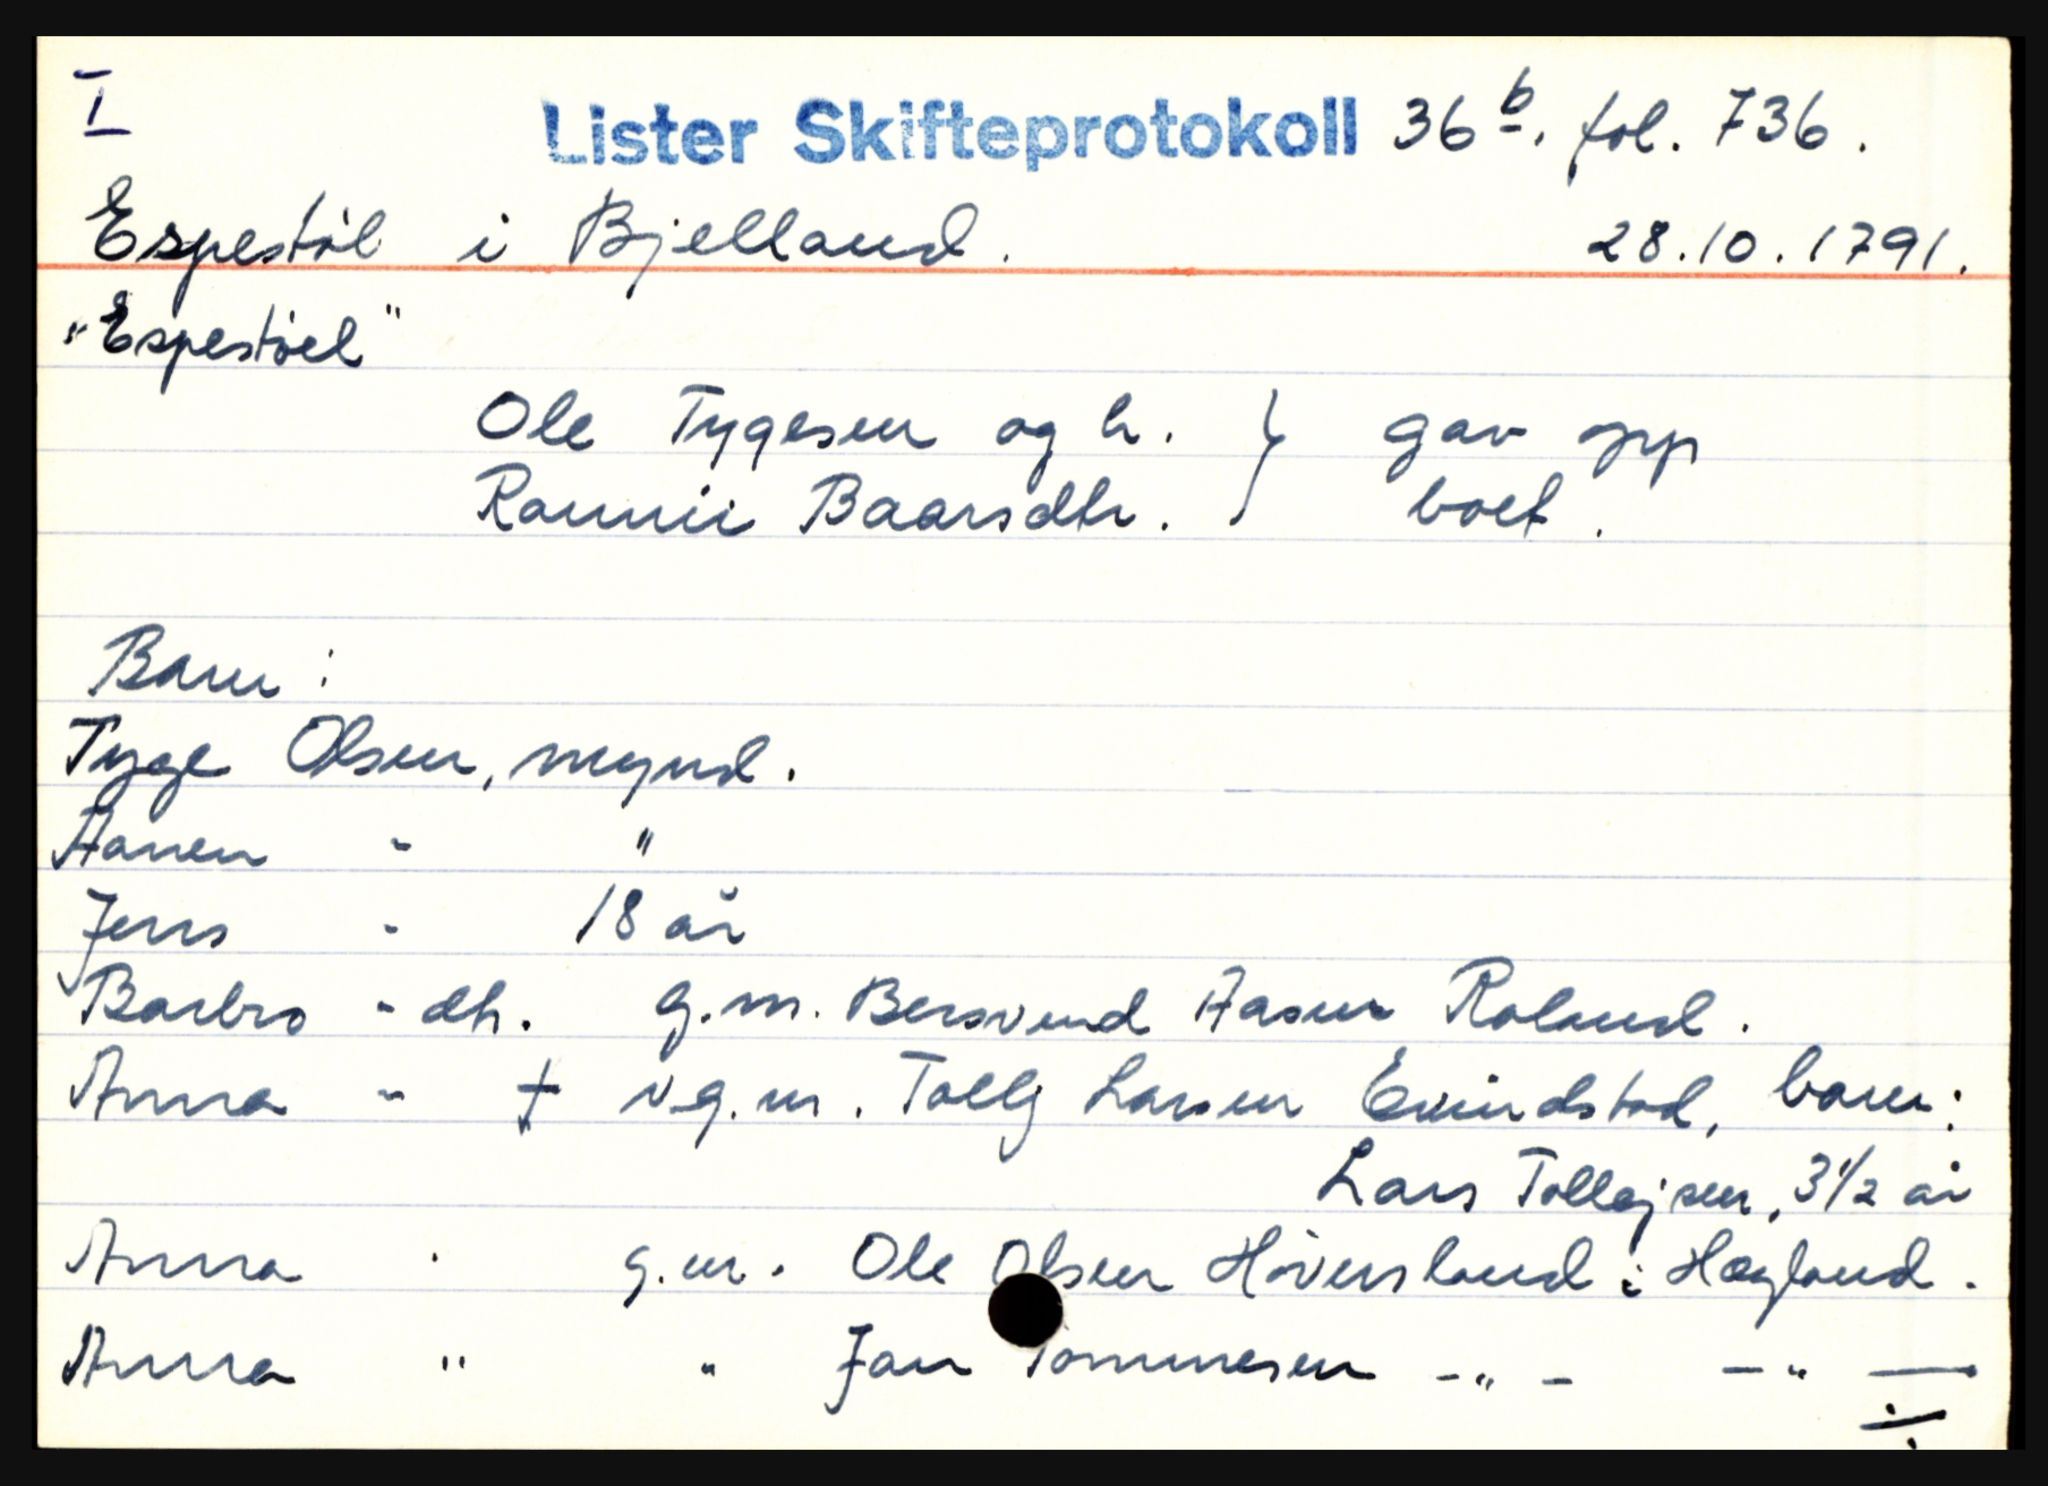 I
Lister Skifteprotokoll 36 b. fol. 736.
Espestøl i Bjelland. 28.10.1791.
"Espestøel"
Ole Tygesen og h. } gav opp
Rannii Baarsdtr. } boet.
Barn:
Tyge Olsen, mynd.
Aanen - "
Jens - 18 år
Barbro - dtr. g.m. Bersvend Aasen Roland.
Anna - † v.g.m. Tollg Larsen Eviindstad, barn:
Lars Tollejsen, 3 1/2 år
Anna · g.m. Ole Olsen Høversland i Hægland.
Anna " " Jan Tommesen -"- -"-
./.